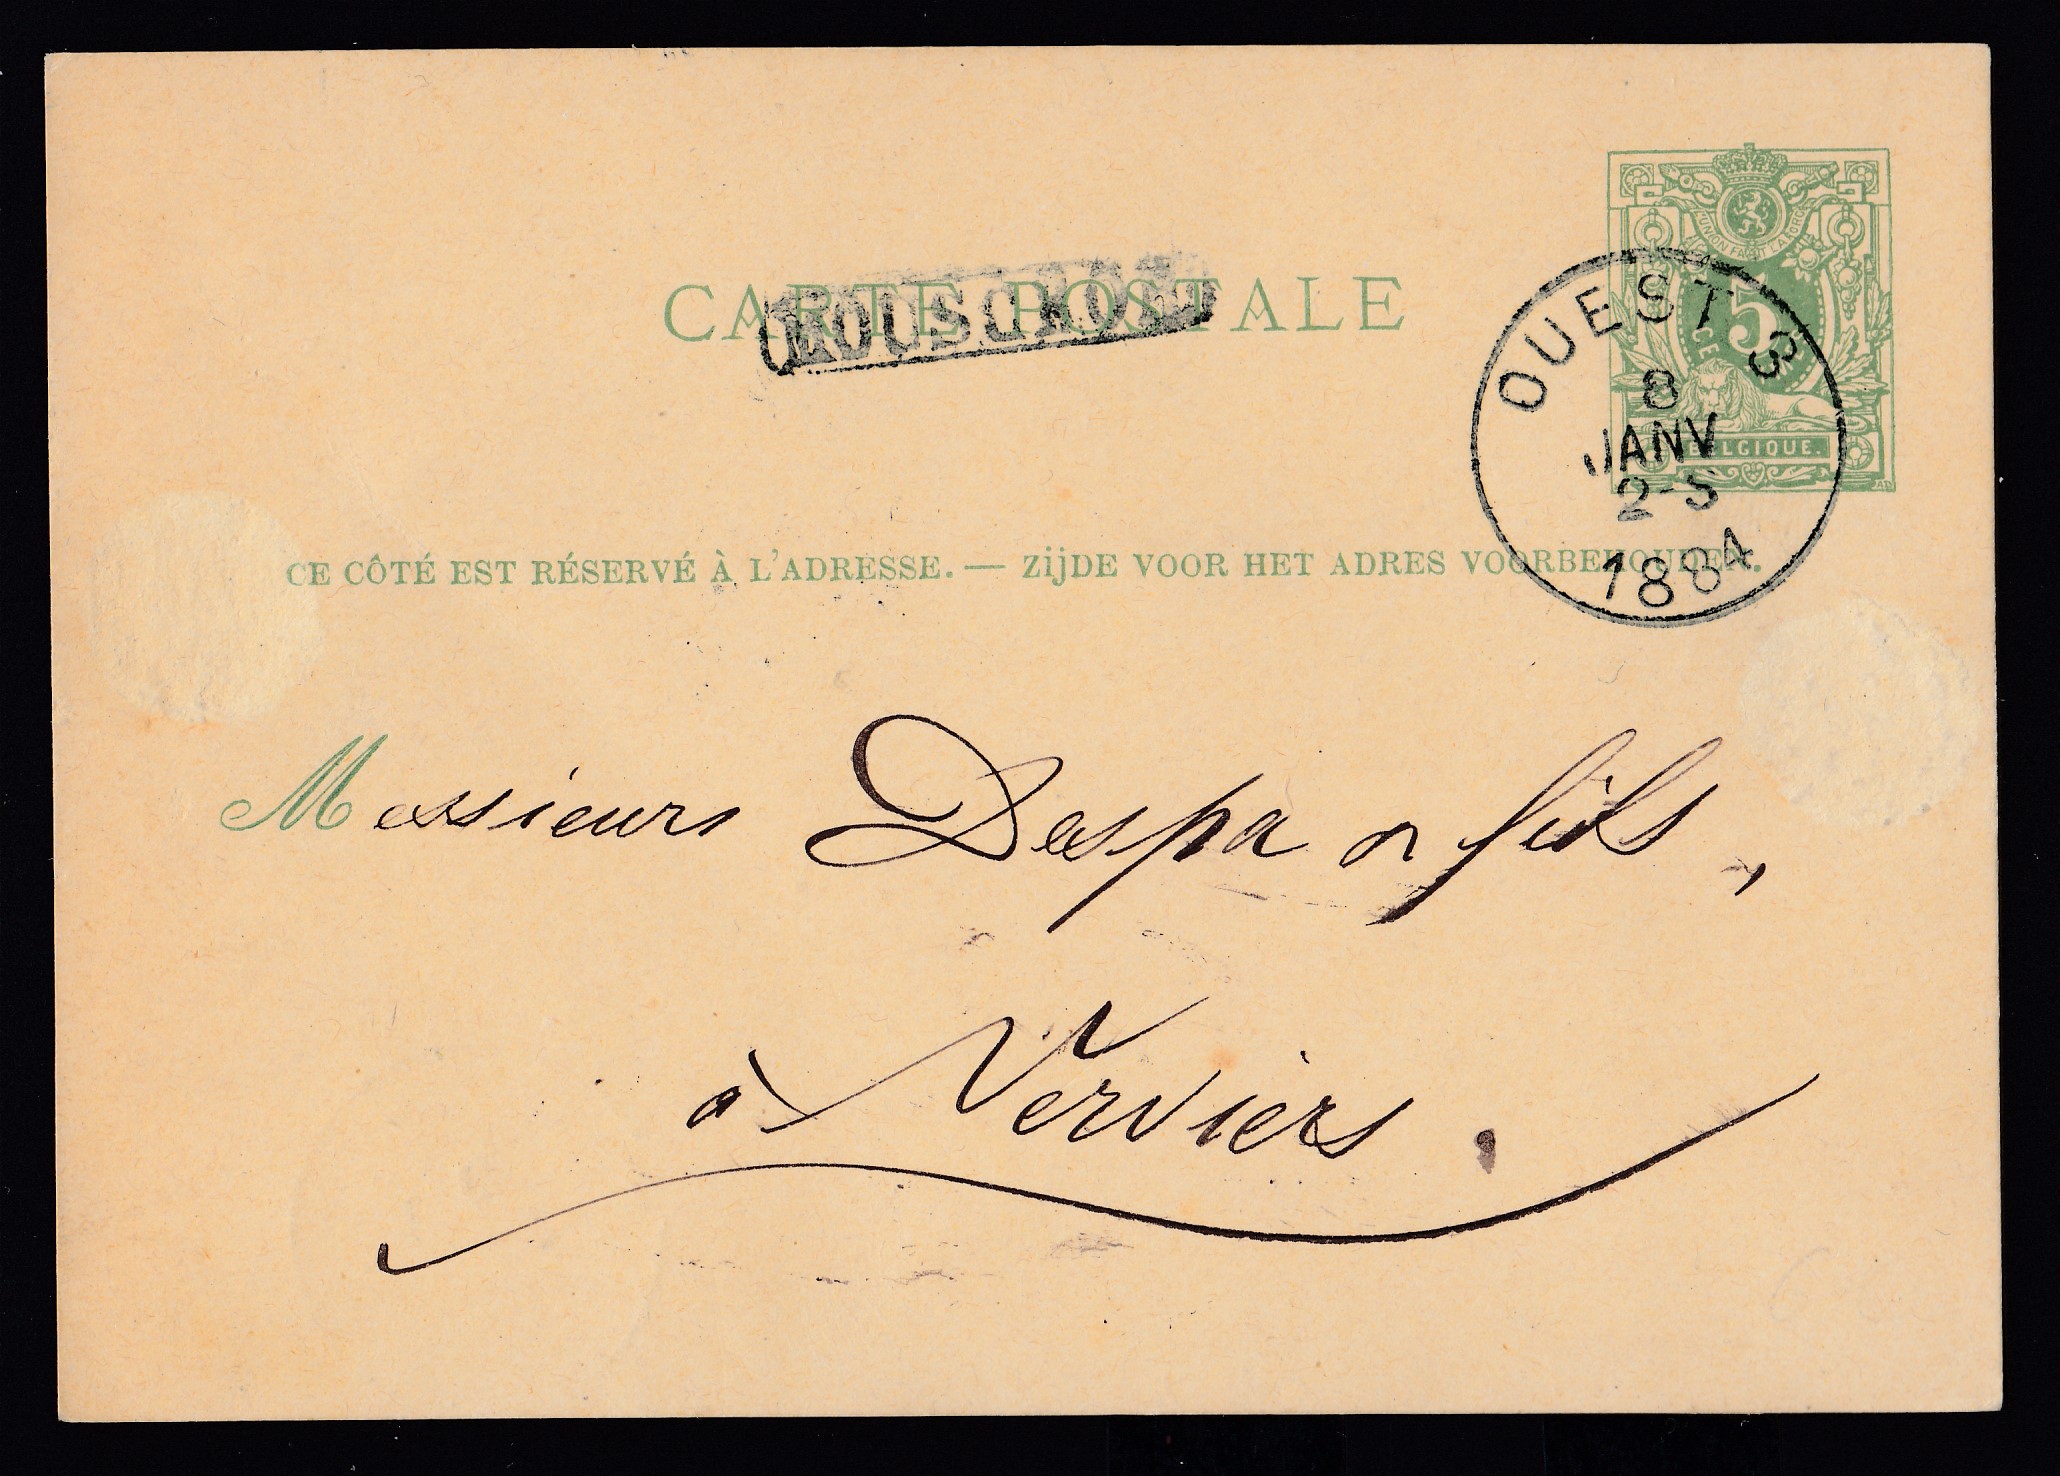 L'UNION FAIT LA FORCE
5
CE
BELGIQUE.
CARTE POSTALE
MOUSCRON
OUEST 3
8
JANV
2-3
1884
CE CÔTÉ EST RÉSERVÉ À L'ADRESSE. — ZijDE VOOR HET ADRES VOORBEHOUDEN.
Messieurs Despa & fils,
à Verviers.